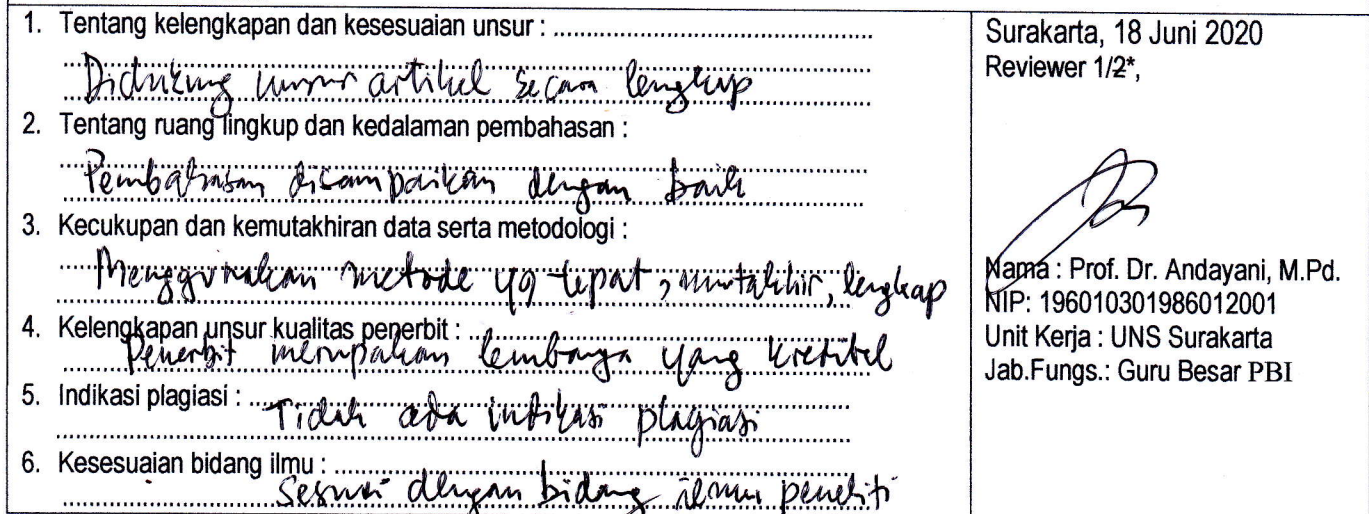 1. Tentang kelengkapan dan kesesuaian unsur : ................................................
Didukung unsur artikel secara lengkap
2. Tentang ruang lingkup dan kedalaman pembahasan :
Pembahasan disampaikan dengan baik
3. Kecukupan dan kemutakhiran data serta metodologi :
Menggunakan metode yg tepat, mutakhir, lengkap
4. Kelengkapan unsur kualitas penerbit : ................................................
Penerbit merupakan lembaga yang kredibel
5. Indikasi plagiasi : ................................................
Tidak ada indikasi plagiasi
6. Kesesuaian bidang ilmu : ................................................
Sesuai dengan bidang ilmu peneliti
Surakarta, 18 Juni 2020
Reviewer 1/2*,
Nama : Prof. Dr. Andayani, M.Pd.
NIP: 196010301986012001
Unit Kerja : UNS Surakarta
Jab.Fungs.: Guru Besar PBI